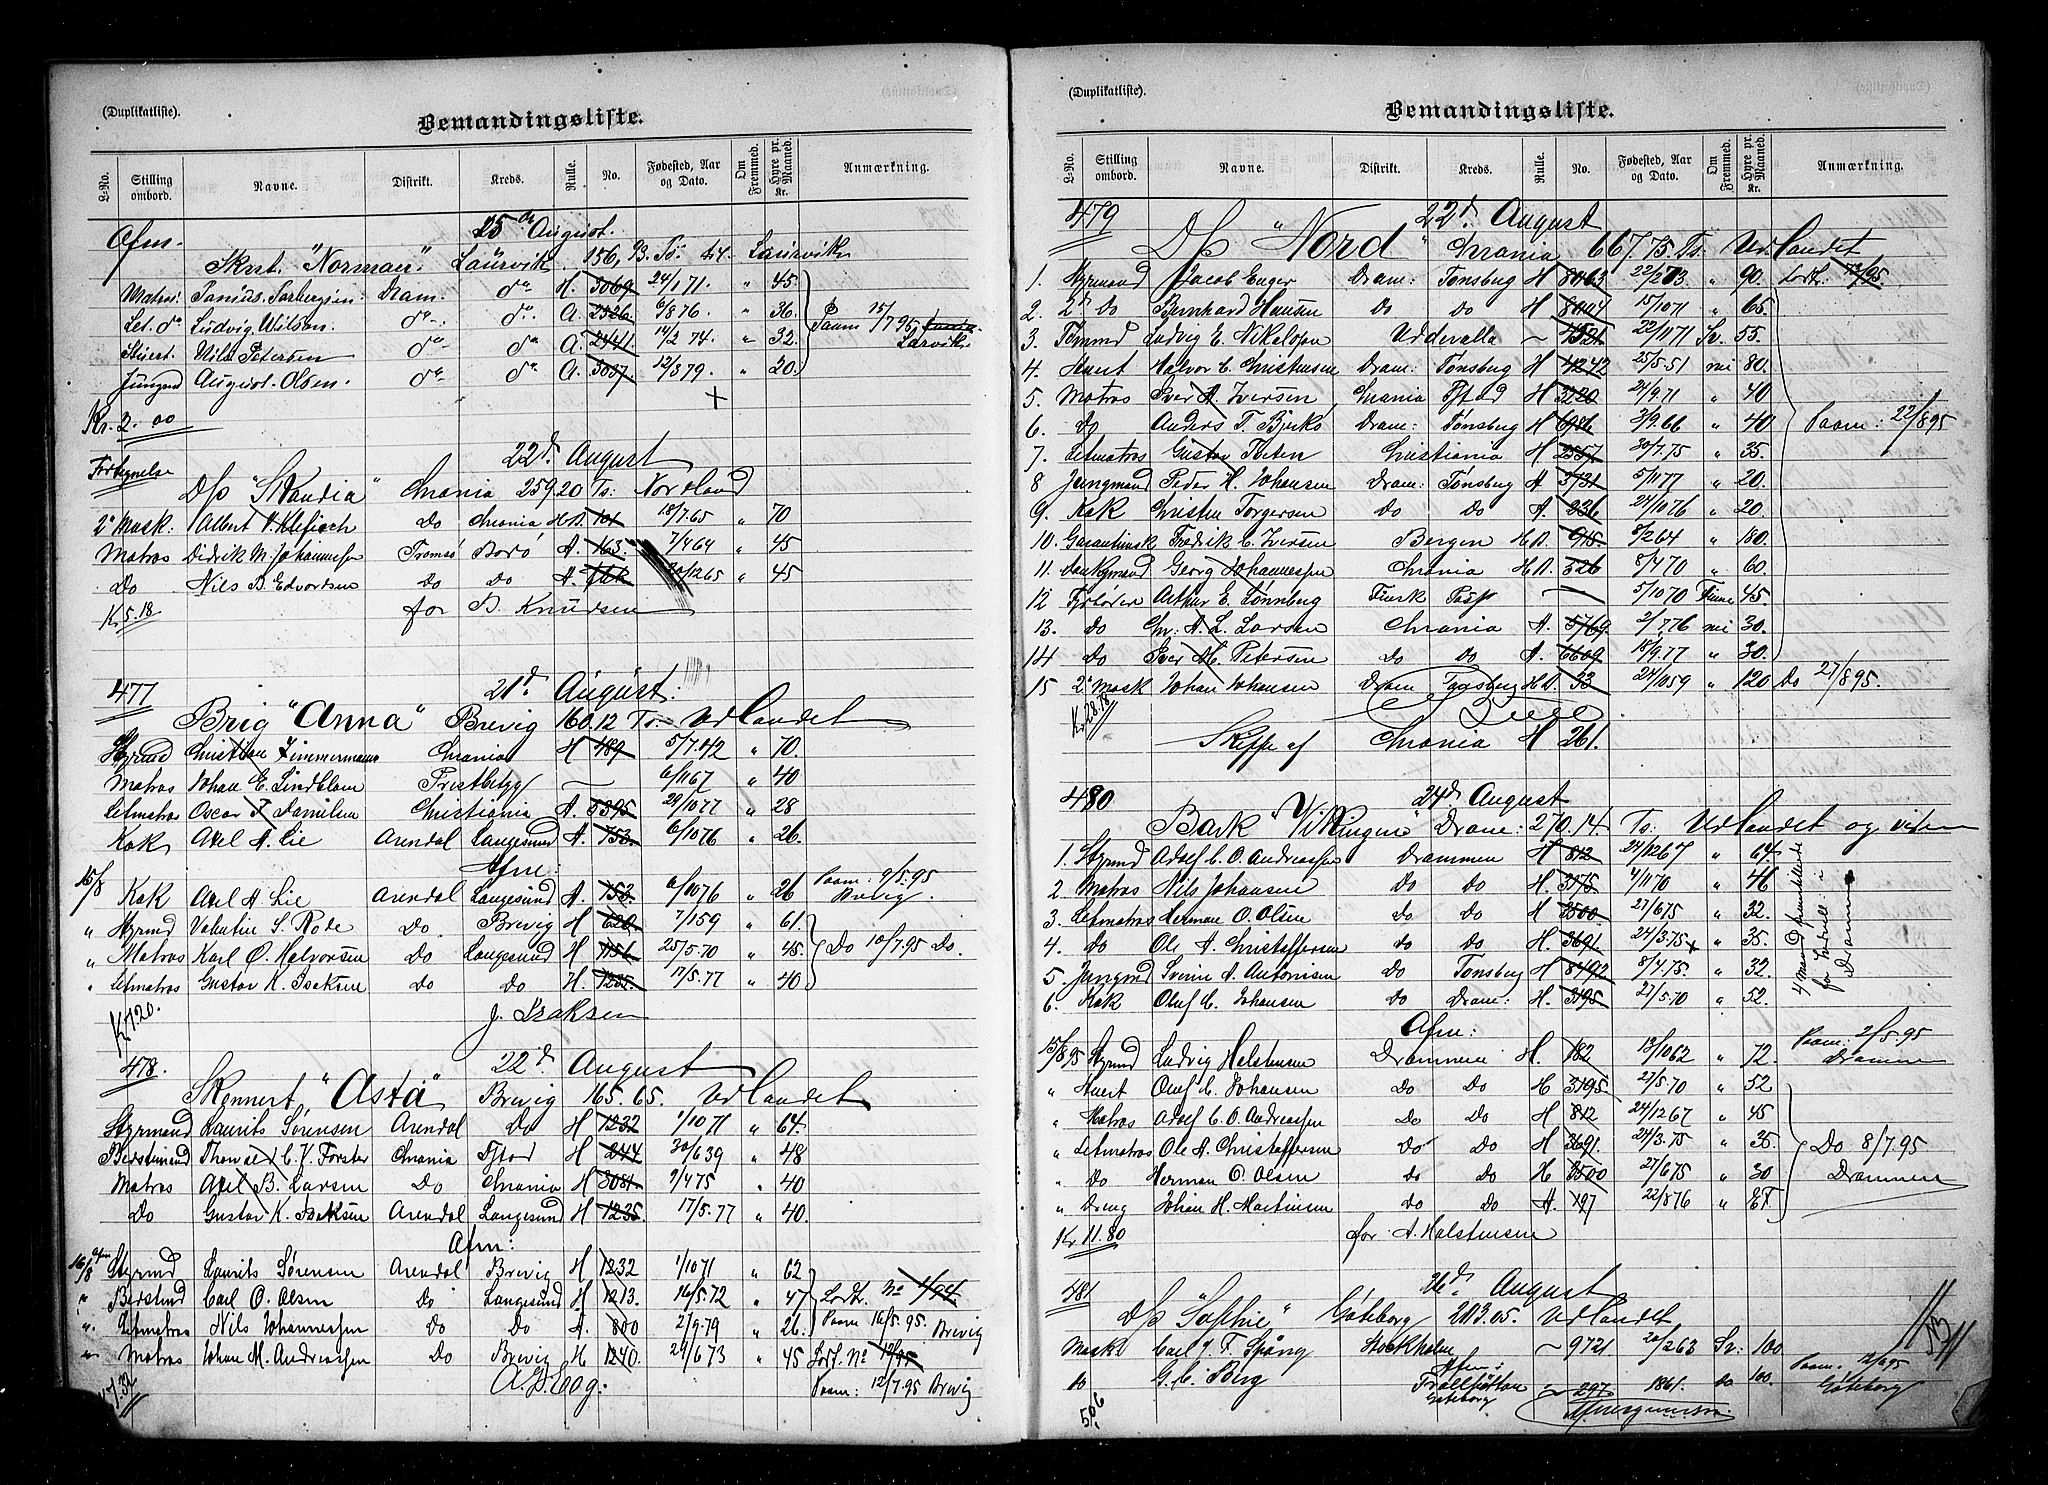 (Duplikatliste).
Bemandingsliste.
L-No. Stilling ombord. Navne. Distrikt. Kreds. Rulle. No. Fødested, Aar og Dato. Om Fremmed. Hyre pr. Maaned. Kr. Anmærkning.
25 de August.
Afm.
Sknt. "Norman" Laurvik 156, B. To. Laurvik
Matros Dram. do H. 3069 24/1 71. " 45
Let. do Ludvig Wilson do do A. 2526 6/8 76. " 36
Stuert. Nils Petersen do do A. 2441 14/2 74. " 32 Paam 15/7 95 Larvik
Jungmd August Olsen. do do A. 3037 12/3 79. " 20
Kr. 2.00
22d August
D/s "Skandia" Chrania 259.20 Ts: Nordland
2. Mask: Albert V. Do Chrania H.A. 101 18/7.65 " 70
Matros Didrik M. Johannessen Tromsö A. 163 7/4 64 " 45
Do Nils B. Edvardsen Do Do A. 20/12 65 " 45
Kr 5.18 for B. Knudsen
477 21d August.
Brig "Anna" Brevig 160.12 Ts: Udlandet
Styrmd Christian Zimmermann Chrania H 489 5/7.42 " 70.
Matros Johan E. Lindblom 6/11 67 " 40
Letmatros Oscar T. Danielsen Christiania A. 5395 29/10 77 " 28
Kok Axel A. Lie Arendal Langesund A. 753 6/10 76 " 26.
Afm:
15/8 Kok Axel A. Lie Arendal Langesund A. 153 6/10 76 " 26 Paam: 9/5.95 Brevig.
" Styrmd Valentin S. Rode Do. Brevig H 620 7/1 59 " 61.
" Matros Karl O. Halvorsen Do Langesund H 1156 25/5.70 " 45. Do 10/7.95 Do.
" Letmatros Gustav K. Isaksen Do Do H. 1235. 17/5.77 " 40
Kr 7.20. J. Isaksen
478. 22d August
Skonnert "Asta" Brevig 165.65. Udlandet
Styrmand Laurits Sørensen Arendal Do H 1232 1/10 71 " 64.
Bestemand Thomas C. V. Forster Chrania Ftstad H 244 30/6 39 " 48
Matros Axel B. Larsen Do Chrania H 3081. 9/4 75 " 40
Do Gustav K. Isaksen Arendal Langesund H 1235. 17/5.77 " 40.
Afm:
16/8 Styrmd Laurits Sørensen Arendal Brevig H 1232 1/10 71 " 62
" Bestmd Carl O. Olsen Do Langesund H 1213. 16/5.72 " 47 Lodt. No 1/94.
" Letmatros Nils Johannessen Do Do A. 800 2/9.79 " 26. Paam 16/5.95. Brevig
" Matros Johan M. Andreassen Do Brevig H 1240. 29/6 73 " 45 Lodt. No 12/95
Paam: 12/7.95 Brevig
(Duplikatliste).
Bemandingsliste.
L-No. Stilling ombord. Navne. Distrikt. Kreds. Rulle. No. Fødested, Aar og Dato. Om Fremmed. Hyre pr. Maaned. Kr. Anmærkning.
479 22d August
D/s "Nord" Chrania 667.75 Ts. Udlandet
1. Styrmand Jacob Enger Dram: Tønsberg H " 90.
2. 2d Do Bernhard Hansen Do Do H 8044 15/10 71 " 65.
3. Tømmd Ludvig E. Nikolson Uddevalla ~ 4521 22/11 71 Sv. 55.
4. Stuert Halvor E. Christensen Dram: Tønsberg H 4242 25/5.51 nei 80.
5. Matros Iver A. Iversen Chrania Ftstad H 3220 24/9.71 " 40
6. Do Anders T. Bjerkø Dram: Tønsberg H 6986 3/9.66 " 40 Paam: 22/8 95
7. Letmatros Gustav Christiania H 2557 30/7.75 " 35.
8 Jungmand Peder H. Johansen Dram: Tønsberg A 3731 5/11 77 " 20.
9. Kok Christen Torgersen Do Do A. 236 24/10 76 " 20.
10. Garantimsk Fredrik C. Iversen Bergen H.A. 915. 8/2 64 " 180.
11. Donkymand Georg Johannessen Chrania H.A. 326 8/4 70 " 60.
12 Fyrbøder Arthur E. Lønnberg Finsk Pass — 5/10 70 Finne 45.
13. Do Chr: A. L. Larsen Chrania A. 5769 2/7.76 nei 30.
14 Do Iver M. Petersen Do Do A. 6609 18/9.77 " 30.
15 2. Mask Johan Johansen Dram Tønsberg H.A. 33 24/10 59 " 120 Do 27/8 95.
Kr 28.18
Skippe af Chrania H 261.
480 24d August
Bark "Vikingen" Dram: 270.14. Ts: Udlandet og viden
1. Styrmd Adolf C. O. Andreassen Drammen H 812 24/12 67 " 64.
2. Matros Nils Johansen Do Do H. 3175 4/11 70 " 46
3. Letmatros Herman O. Olsen Do Do H 3500 27/6 75 " 32.
4. Do Ole A. Christoffersen Do Do H 3691. 24/3.75 " 35.
5. Jungmd Sverin A. Antonisen Do Tønsberg H 8492 8/4.75. " 32
6. Kok Oluf C. Johansen Do Dram: H. 3195 27/5.70 " 52.
4 Mand fremstillede for Lodsedl: i Drammen
Afm:
15/8 95 Styrmd Ludvig Halstensen Drammen H. 182 13/10 62 " 72. Paam: 2/5.95 Drammen
" Stuert Oluf C. Johansen Do Do H 3195 27/5.70 " 52
" Matros Adolf C. O. Andreassen Do Do H 812 24/12 67 " 45
" Letmatros Ole A. Christoffersen Do Do H 3691. 24/3.75 " 35 Do 8/7.95
" Do Herman O. Olsen do Do H 3500 27/6 75 " 30 Drammen
" Dreng Johan H. Martinsen do Do A. 197 22/8 76 "
Kr 11.80 for A. Halstensen
481 26d. August
D/s "Sophie" Göteborg 203.05. Udlandet
Mask Carl J. F. Spång Stockholm ~ 9721 20/2 63 Sv: 100
Afm:
Do G. C. Berg Trollhättan Göteborg ~ 297 1861. Do 100. Paam: Göteborg